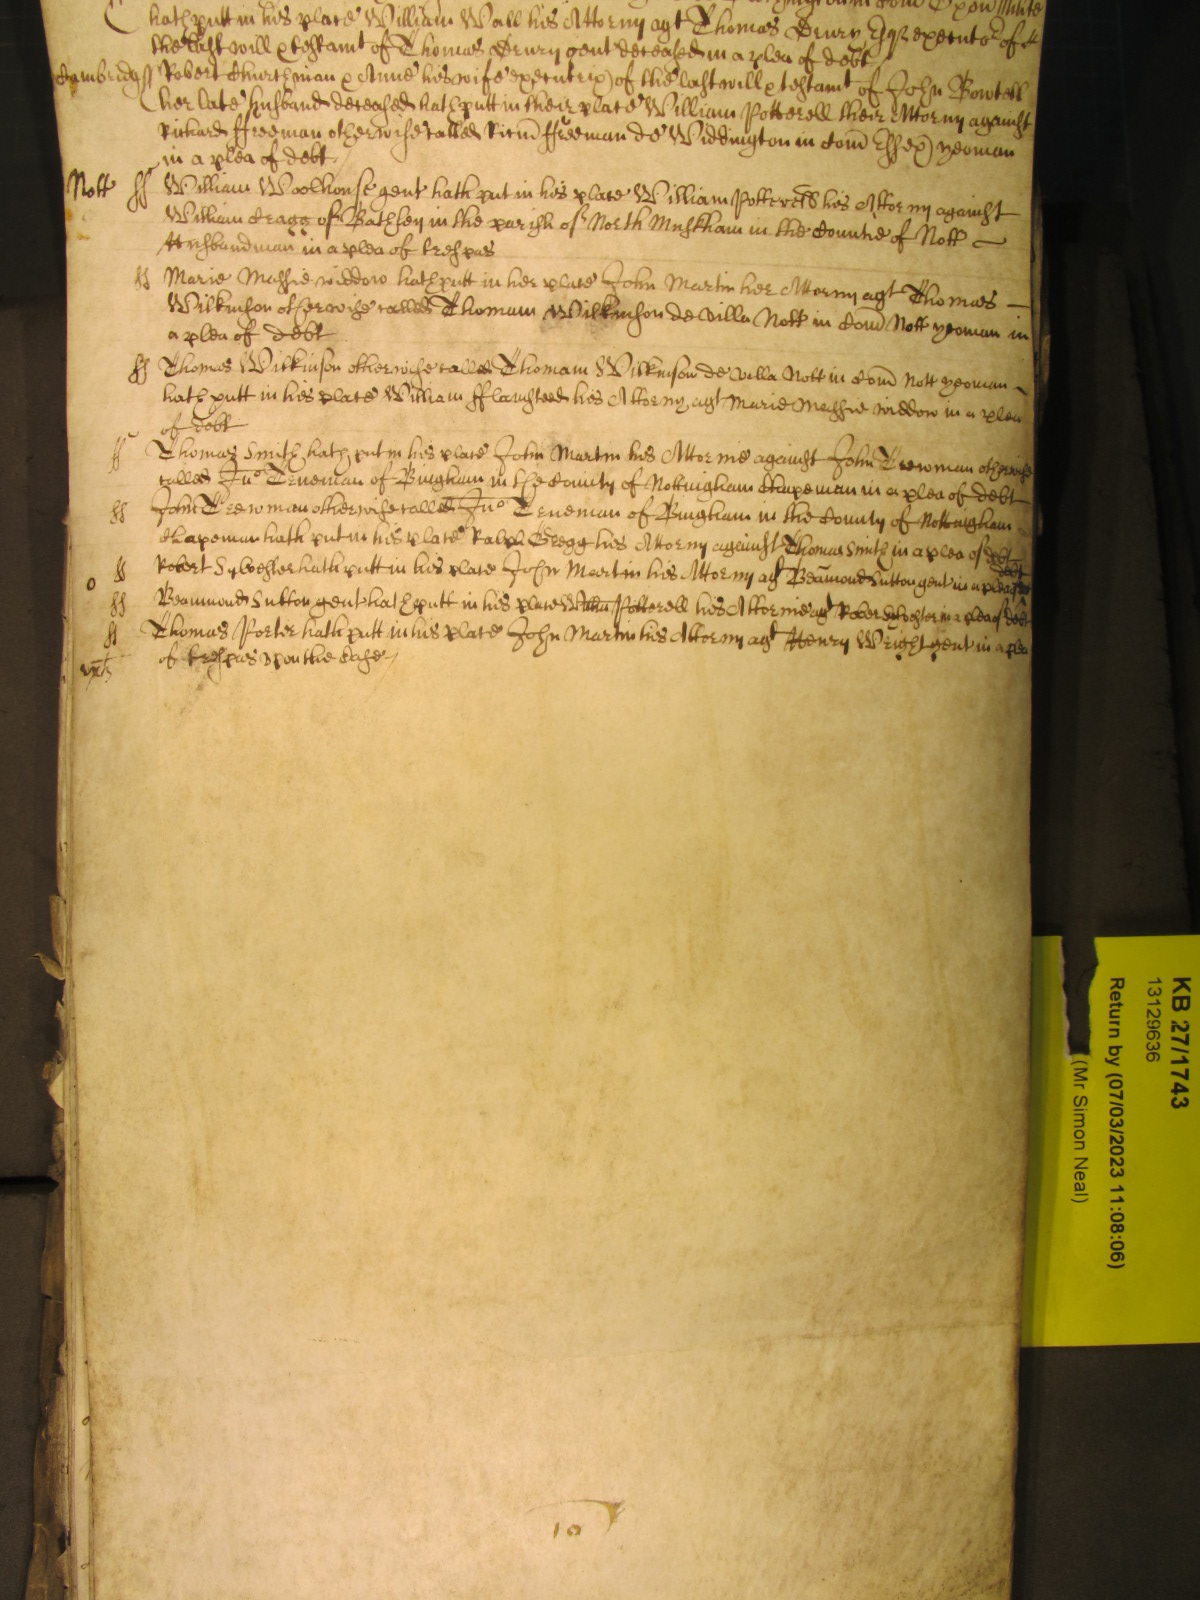 hath putt in his place William Wall his Attorny agt Thomas Drury Esqr executor of
the last will & testamt of Thomas Drury gent deceased in a plea of debt
Cambridg ss Robert Churchman & Anne his wife executrix of the last will & testamt of John Bowtell
her late husband deceased hath putt in their place William Potterell their Attorny against
Richard ffreeman otherwise called Ricum ffreeman de Widdington in Com Essex yeoman
in a plea of debt
Nott ss William Woolhouse gent hath put in his place William Potterell his Attorny against
William Cragg of Bathley in the parish of North Muskham in the Countie of Nott
Husbandman in a plea of trespas
ss Marie Messie widdow hath putt in her place John Martin her Attorny agt Thomas
Wilkinson otherwise called Thomam Wilkinson de villa Nott in Com Nott yeoman in
a plea of debt
ss Thomas Wilkinson otherwise called Thomam Wilkinson de villa Nott in Com Nott yeoman
hath putt in his place William fflamsteed his Attorny agt Marie Messie widdow in a plea
of debt
ss Thomas Smith hath put in his place John Martin his Attornie against John Trewman otherwise
called Jno Trueman of Bingham in the County of Nottingham Chapeman in a plea of debt
ss John Trewman otherwise called Jno Trueman of Bingham in the County of Nottingham
Chapeman hath put in his place Ralph Gregg his Attorny against Thomas Smith in a plea of debt
o ss Robert Sylvester hath putt in his place John Martin his Attorny agt Beamond Sutton gent in a plea of debt
ss Beaumond Sutton gent hath putt in his place Willm Potterell his Attornie agt Robert Sylvester in a plea of debt
ss Thomas Porter hath putt in his place John Martin his Attorny agt Henry Wright gent in a plea
of trespas upon the Case
10
KB 27/1743
13129636
Return by (07/03/2023 11:08:06)
(Mr Simon Neal)